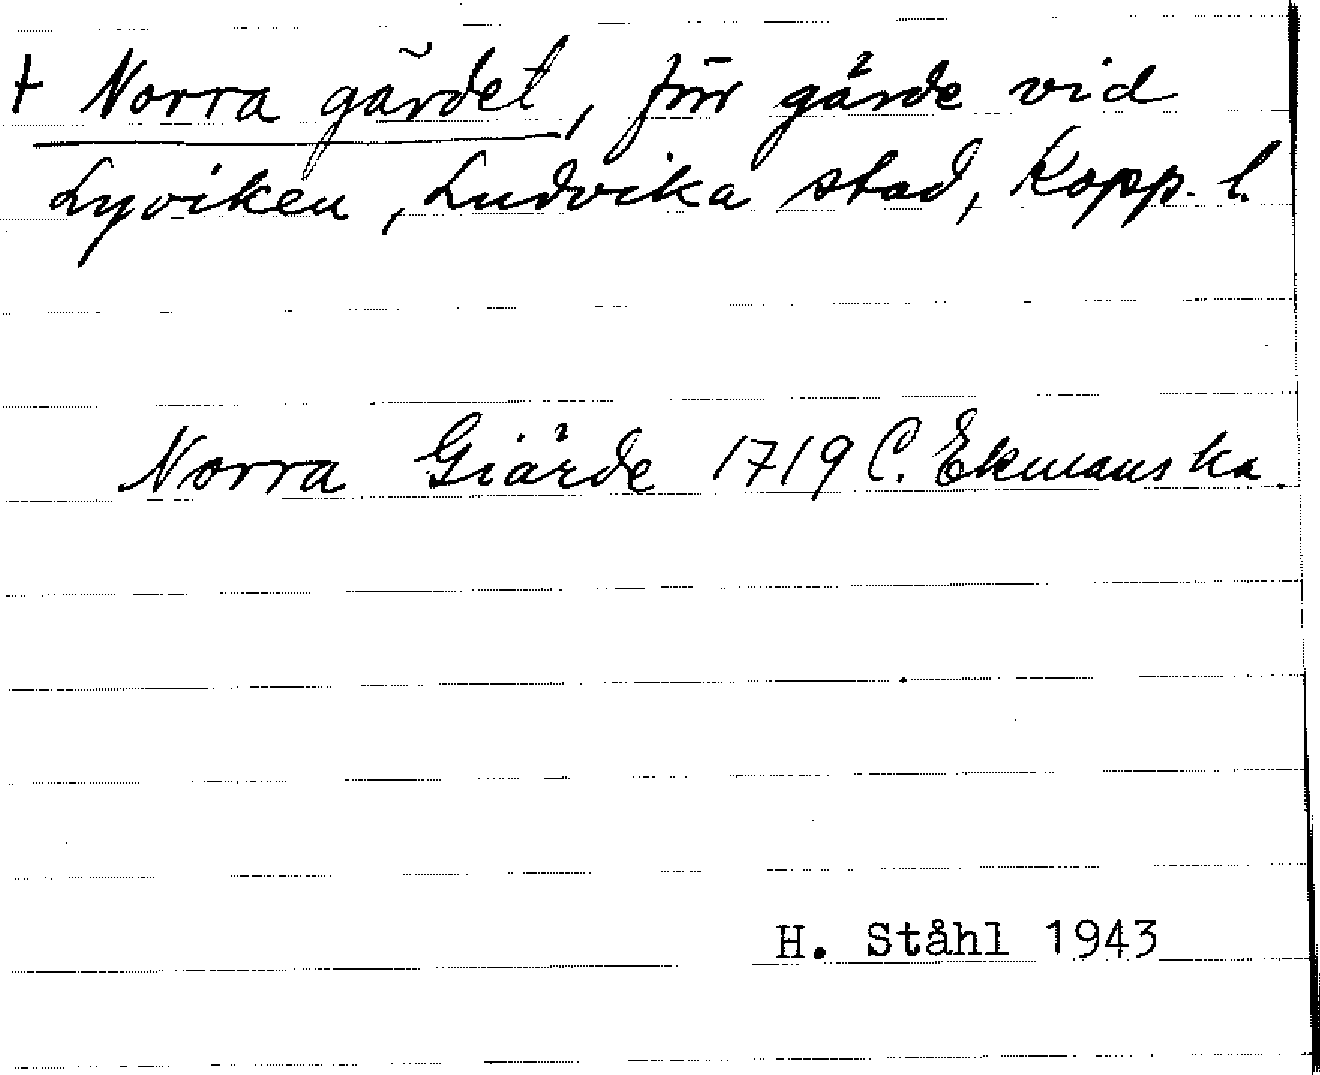 + Norra gärdet, förr gärde vid
Lyviken, Ludvika stad, Kopp. l.
Norra Giärde 1719 C. Ekmans ka.
H. Ståhl 1943